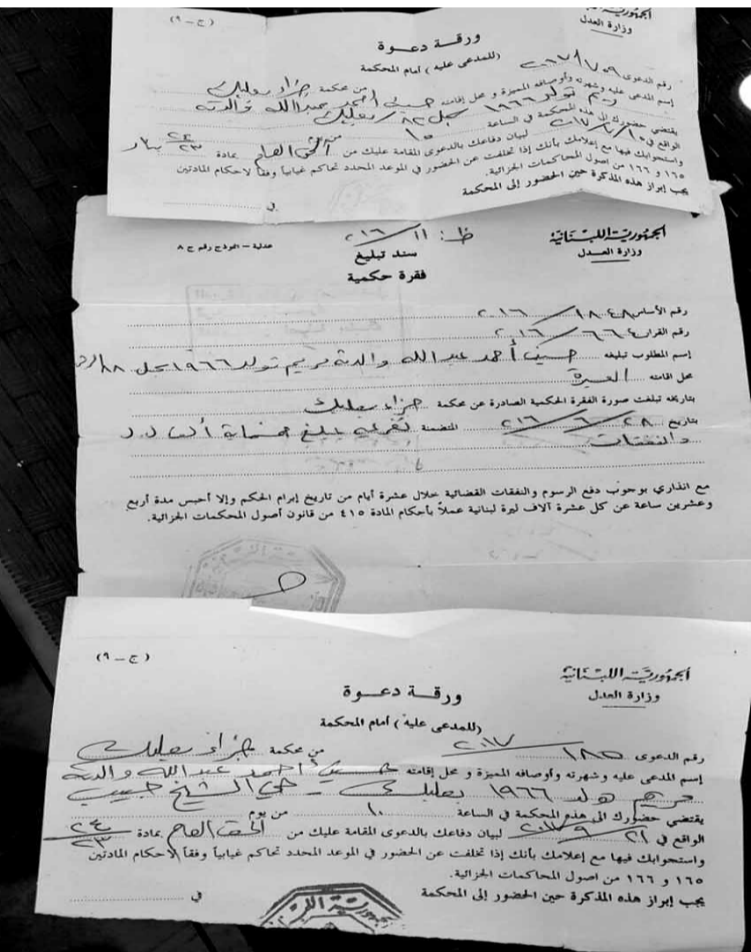 الجمهورية اللبنانية
وزارة العدل
(ج – ٩)
ورقة دعوة
(للمدعى عليه) أمام المحكمة
رقم الدعوى ٧٠٩ / ٢٠١٧ من محكمة جزاء بعلبك
إسم المدعى عليه وشهرته وأوصافه المميزة و محل إقامته حسين أحمد عبدالله والدته
مريم تولد ١٩٦٦ سجل ٨٢ بعلبك
يقتضي حضورك الى هذه المحكمة في الساعة ١٠ من يوم
الواقع في ٢٠١٧ لبيان دفاعك بالدعوى المقامة عليك من الحق العام بمادة ٢٤/٢٣
واستجوابك فيها مع إعلامك بأنك إذا تخلفت عن الحضور في الموعد المحدد تحاكم غيابياً وفقاً لاحكام المادتين
١٦٥ و ١٦٦ من اصول المحاكمات الجزائية.
يجب إبراز هذه المذكرة حين الحضور إلى المحكمة
في
الجمهورية اللبنانية
وزارة العدل
ط: ١١ / ٢٠١٦
سند تبليغ
فقرة حكمية
عدلية – نموذج رقم ج ٨
رقم الأساس ١٨٤٨ / ٢٠١٦
رقم القرار ٦٦٤ / ٢٠١٦
إسم المطلوب تبليغه حسين أحمد عبدالله والدته مريم تولد ١٩٦٦ سجل ٨٨
محل اقامته العسيرة
بتاريخه تبلغت صورة الفقرة الحكمية الصادرة عن محكمة جزاء بعلبك
بتاريخ ٢٨ / ٦ / ٢٠١٦ المتضمنة تغريمه مبلغ خمسماية ألف ل.ل
والنفقات
مع انذاري بوجوب دفع الرسوم والنفقات القضائية خلال عشرة أيام من تاريخ إبرام الحكم وإلا أحبس مدة أربع
وعشرين ساعة عن كل عشرة آلاف ليرة لبنانية عملاً بأحكام المادة ٤١٥ من قانون أصول المحكمات الجزائية.
الجمهورية اللبنانية
وزارة العدل
(ج – ٩)
ورقة دعوة
(للمدعى عليه) أمام المحكمة
رقم الدعوى ١٨٥ / ٢٠١٧ من محكمة جزاء بعلبك
إسم المدعى عليه وشهرته وأوصافه المميزة و محل إقامته حسين أحمد عبدالله والدته
مريم مولد ١٩٦٦ بعلبك – حي الشيخ حبيب
يقتضي حضورك الى هذه المحكمة في الساعة ١٠ من يوم
الواقع في ٢١ / ٩ / ٢٠١٧ لبيان دفاعك بالدعوى المقامة عليك من الحق العام بمادة ٢٤/٢٣
واستجوابك فيها مع إعلامك بأنك إذا تخلفت عن الحضور في الموعد المحدد تحاكم غيابياً وفقاً لأحكام المادتين
١٦٥ و ١٦٦ من اصول المحاكمات الجزائية.
يجب إبراز هذه المذكرة حين الحضور إلى المحكمة
في